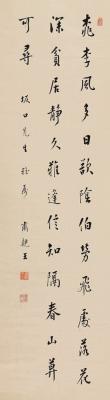 桃李風多日欲陰伯勞飛處落花
深貧居靜久難逢信知隔春山
可尋 坂口先生雅屬 肅親王